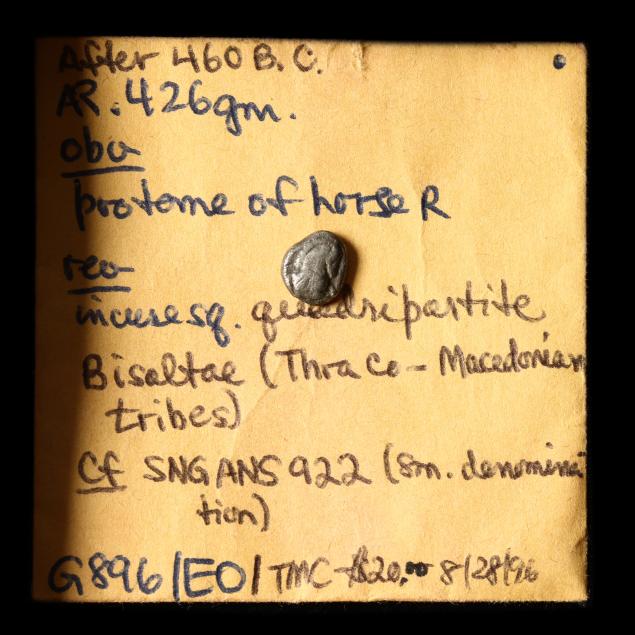 After 460 B.C.
AR. .426gm.
obv
protome of horse R
rev
incuse sq. quadripartite
Bisaltae (Thraco-Macedonian
tribes)
Cf SNG ANS 922 (sm. denomina
tion)
G896/EO/TMC $20.00 8/28/96